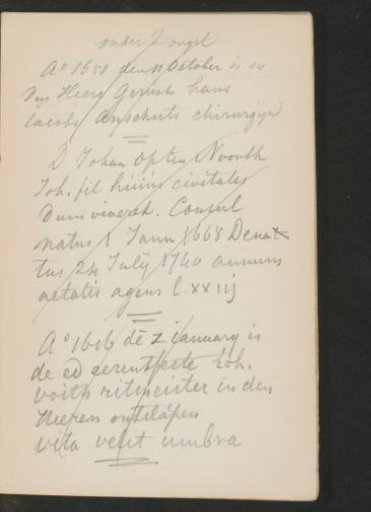 onder 't orgel
A° 1651 den 11 October is in
Den Heere Gerust hans
Iacobs Anscherts chirurgijn
D Iohan opten Noorth
Ioh. fil huius civitatis
Dum viveret. Consul
natus 1 Iann 1668 Dena
tus 24 Iulij 1740 annum
aetatis agens l.xxiij
A° 1616 dē 2 ianuary is
de ed erentfeste Ioh.
voith ritmeister in den
Heeren ontslâpen
vita velut umbra